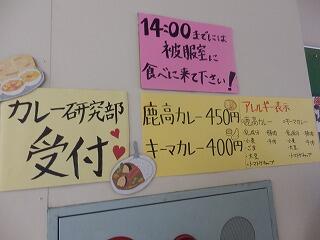 14:00までには
被服室に
食べに来て下さい!
カレー研究部
受付
鹿高カレー450円
キーマカレー400円
アレルギー表示
・鹿高カレー
・キーマカレー
乳成分 豚肉
小麦 牛肉
ごま
大豆